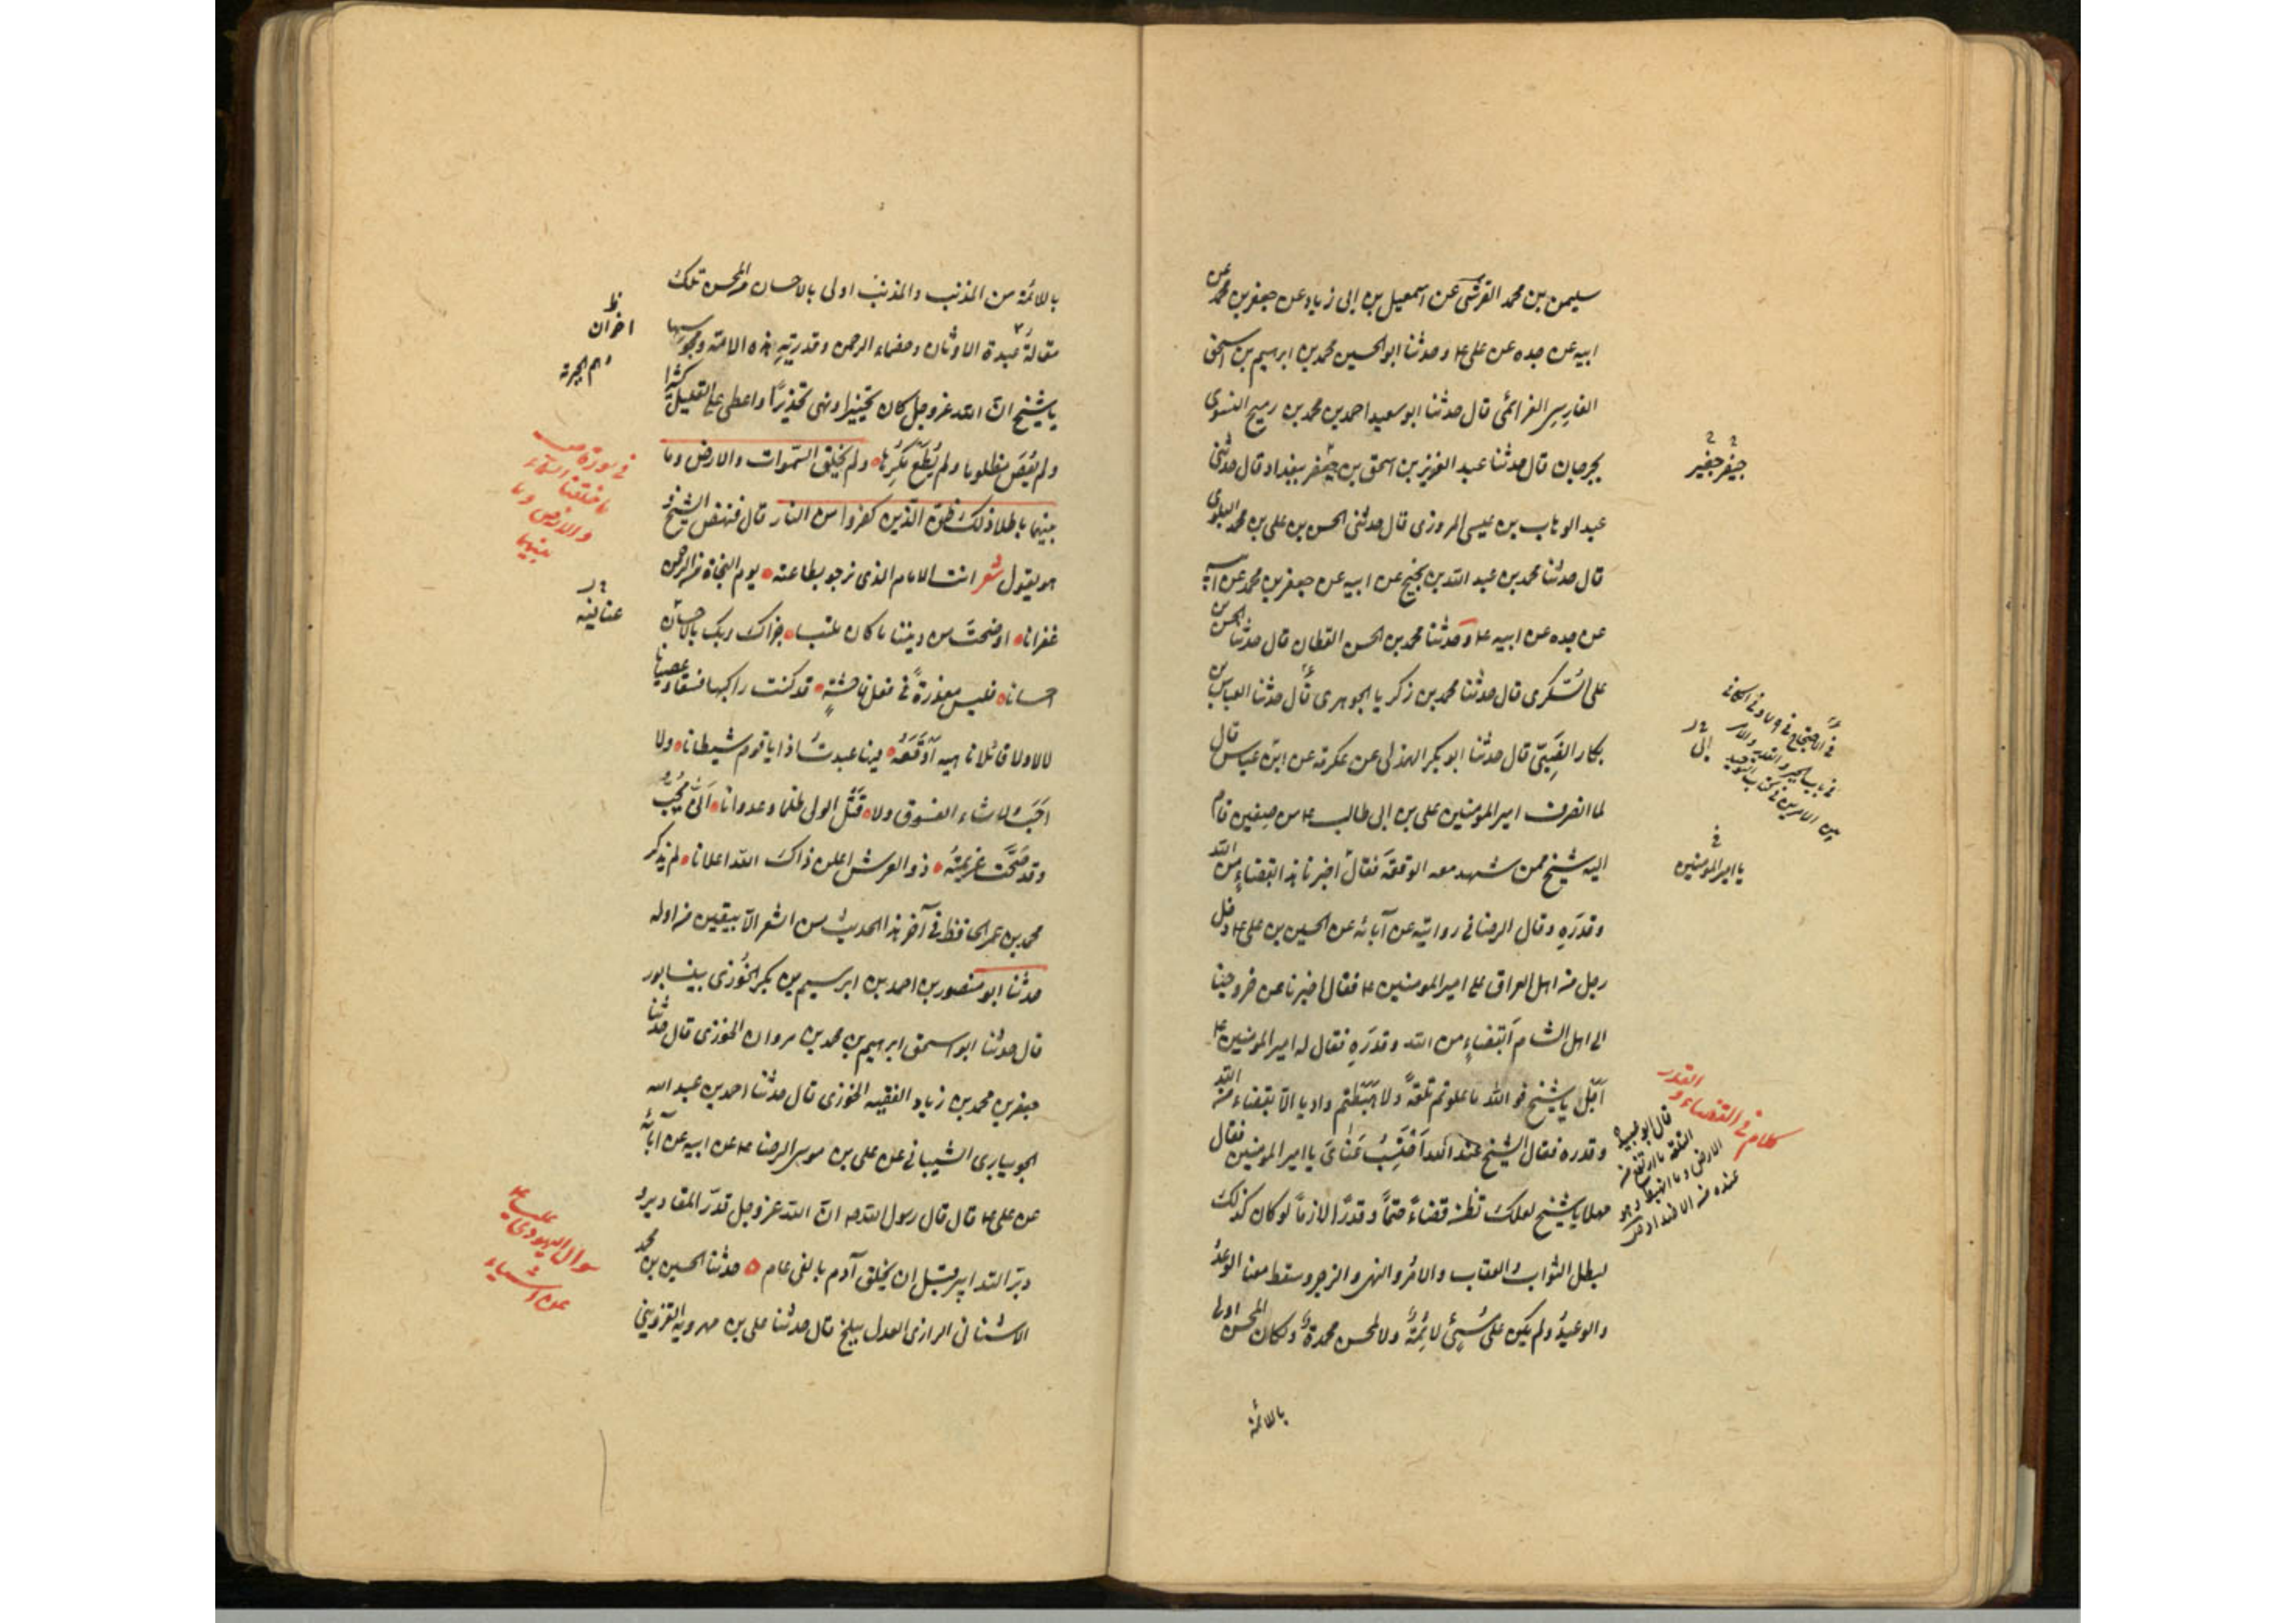 سليمن بن محمد القرشى عن اسمعيل بن ابى زياد عن جعفر بن محمد عن
ابيه عن جده عن على ع وحدثنا ابو الحسين محمد بن ابرهيم بن اسحق
الفارسى الغرائمى قال حدثنا ابو سعيد احمد بن محمد بن رميح النسوى
بجرجان قال حدثنا عبد العزيز بن اسحق بن جعفر ببغداد قال حدثنى
عبد الوهاب بن عيسى المروزى قال حدثنى الحسن بن على بن محمد البلوى
قال حدثنا محمد بن عبد الله بن نجيح عن ابيه عن جعفر بن محمد عن ابيه
عن جده عن ابيه ع وحدثنا محمد بن الحسن القطان قال حدثنا الحسن بن
على السكرى قال حدثنا محمد بن زكريا الجوهرى قال حدثنا العباس بن
بكار الضبى قال حدثنا ابو بكر الهذلى عن عكرمة عن ابن عباس قال
لما انصرف امير المؤمنين على بن ابى طالب ع من صفين قام
اليه شيخ ممن شهد معه الوقعة فقال اخبرنا هذا ابقضاء من الله
وقدره وقال الرضا فى روايته عن آبائه عن الحسين بن على ع دخل
رجل من اهل العراق على امير المومنين ع فقال اخبرنا عن خروجنا
الى اهل الشام أبقضاء من الله وقدره فقال له امير المومنين ع
اجل يا شيخ فو الله ما علوتم تلعة ولا هبطتم واديا الا بقضاء من الله
وقدره فقال الشيخ عند الله احتسب عنائى يا امير المومنين فقال
مهلا يا شيخ لعلك تظن قضاء حتما وقدرا لازما لو كان كذلك
لبطل الثواب والعقاب والامر والنهى والزجر وسقط معنا الوعد
والوعيد ولم يكن على مسيئ لائمة ولا لمحسن محمدة ولكان المحسن اولى
بالائمة
جيفر جيفير
يا امير المومنين
كلام فى القضاء والقدر
بالائمة من المذنب والمذنب اولى بالاحسان من المحسن تلك
مقالة عبدة الاوثان وخصماء الرحمن وقدرية هذه الامة ومجوسها
يا شيخ ان الله عز وجل كان تخييرا ونهى تحذيرا واعطى على القليل كثيرا
ولم يعص مغلوبا ولم يطع مكرها ولم يخلق السموات والارض وما
بينهما باطلا ذلك ظن الذين كفروا من النار قال فنهض الشيخ و
هو يقول شعر انت الامام الذى نرجو بطاعته يوم النجاة من الرحمن
غفرانا اوضحت من ديننا ما كان ملتبسا جزاك ربك بالاحسان
احسانا فليس معذرة فى فعل فاحشة قد كنت راكبها فسقا وعصيانا
لا لا ولا قائلا ناهيه اوقعه فيها عبدت اذا يا قوم شيطانا ولا
احب ولا شاء الفسوق ولا قتل الولى ظلما وعدوانا انى يحب
وقد صحت عزيمته ذو العرش اعلن ذاك الله اعلانا لم يذكر
محمد بن عمر الحافظ فى آخر هذا الحديث من الشعر الا بيتين من اوله
حدثنا ابو منصور بن احمد بن ابرهيم بن بكر الخوزى بنيسابور
قال حدثنا ابو اسحق ابرهيم بن محمد بن مروان الخوزى قال حدثنا
جعفر بن محمد بن زياد الفقيه الخوزى قال حدثنا احمد بن عبد الله
الجويبارى الشيبانى عن على بن موسى الرضا ع عن ابيه عن آبائه
عن على ع قال قال رسول الله ص ان الله عز وجل قدر المقادير و
دبر التدابير قبل ان يخلق آدم بالفى عام حدثنا الحسين بن محمد
الاشنانى الرازى العدل ببلخ قال حدثنا على بن مهرويه القزوينى
اخوان
فى سورة ص
ما خلقنا السماء
والارض وما
بينهما
سوال اليهودى
عن اشياء